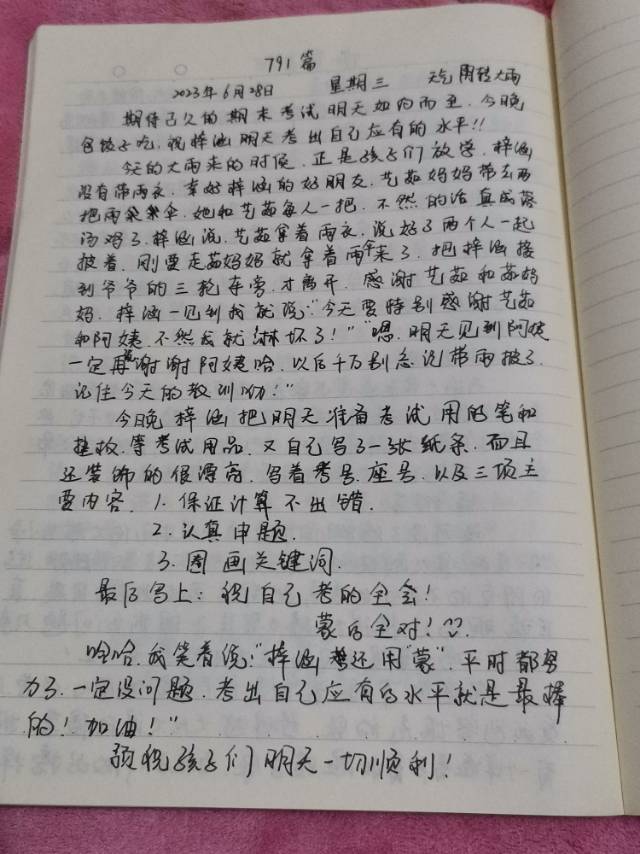 791篇
2023年6月28日 星期三 天气 阴转大雨
期待已久的期末考试明天如约而至,今晚
包饺子吃,祝梓涵明天考出自己应有的水平!!
今天的大雨来的时候,正是孩子们放学,梓涵
没有带雨衣,幸好梓涵的好朋友,艺茹妈妈带去两
把雨伞,她和艺茹每人一把,不然的话真成落
汤鸡了,梓涵说,艺茹拿着雨衣,说好了两个人一起
披着,刚要走茹妈妈就拿着雨伞来了,把梓涵接
到爷爷的三轮车旁,才离开,感谢艺茹和茹妈
妈,梓涵一见到我就说:“今天要特别感谢艺茹
和阿姨,不然我就淋坏了!”“嗯,明天见到阿姨
一定再谢谢阿姨哈,以后千万别忘记带雨披了,
记住今天的教训呦!”
今晚梓涵把明天准备考试用的笔和
橡皮,等考试用品,又自己写了一张纸条,而且
还装饰的很漂亮,写着考号,座号,以及三项主
要内容,1.保证计算不出错.
2.认真审题.
3.圈画关键词.
最后写上:祝自己考的全会!
蒙的全对!
哈哈,我笑着说:“梓涵还用“蒙”,平时都努
力了,一定没问题,考出自己应有的水平就是最棒
的!加油!”
预祝孩子们明天一切顺利!